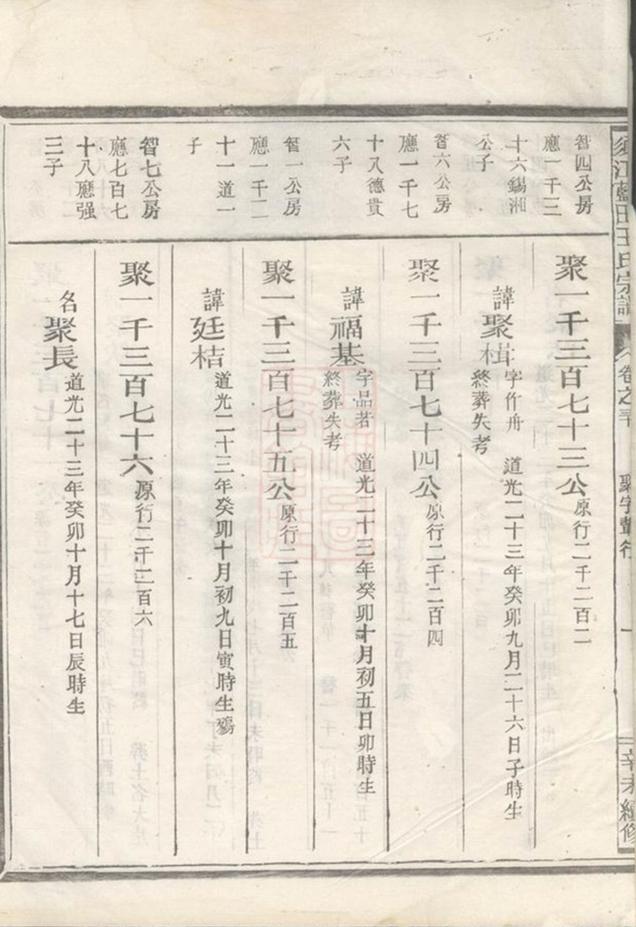 須江藍田王氏宗譜
卷之三十
聚字輩行
辛未續修
智四公房
應一千三
十六錫湘
公子
聚一千三百七十三公原行二千二百二
諱聚楫字作舟 道光二十三年癸卯九月二十六日子時生
終葬失考
智六公房
應一千七
十八德貴
六子
聚一千三百七十四公原行二千二百四
諱福基字品若 道光二十三年癸卯十月初五日卯時生
終葬失考
智一公房
應一千二
十一道一
子
聚一千三百七十五公原行二千二百五
諱廷桔道光二十三年癸卯十月初九日寅時生殤
智七公房
應七百七
十八應强
三子
聚一千三百七十六原行二千二百六
名聚長道光二十三年癸卯十月十七日辰時生